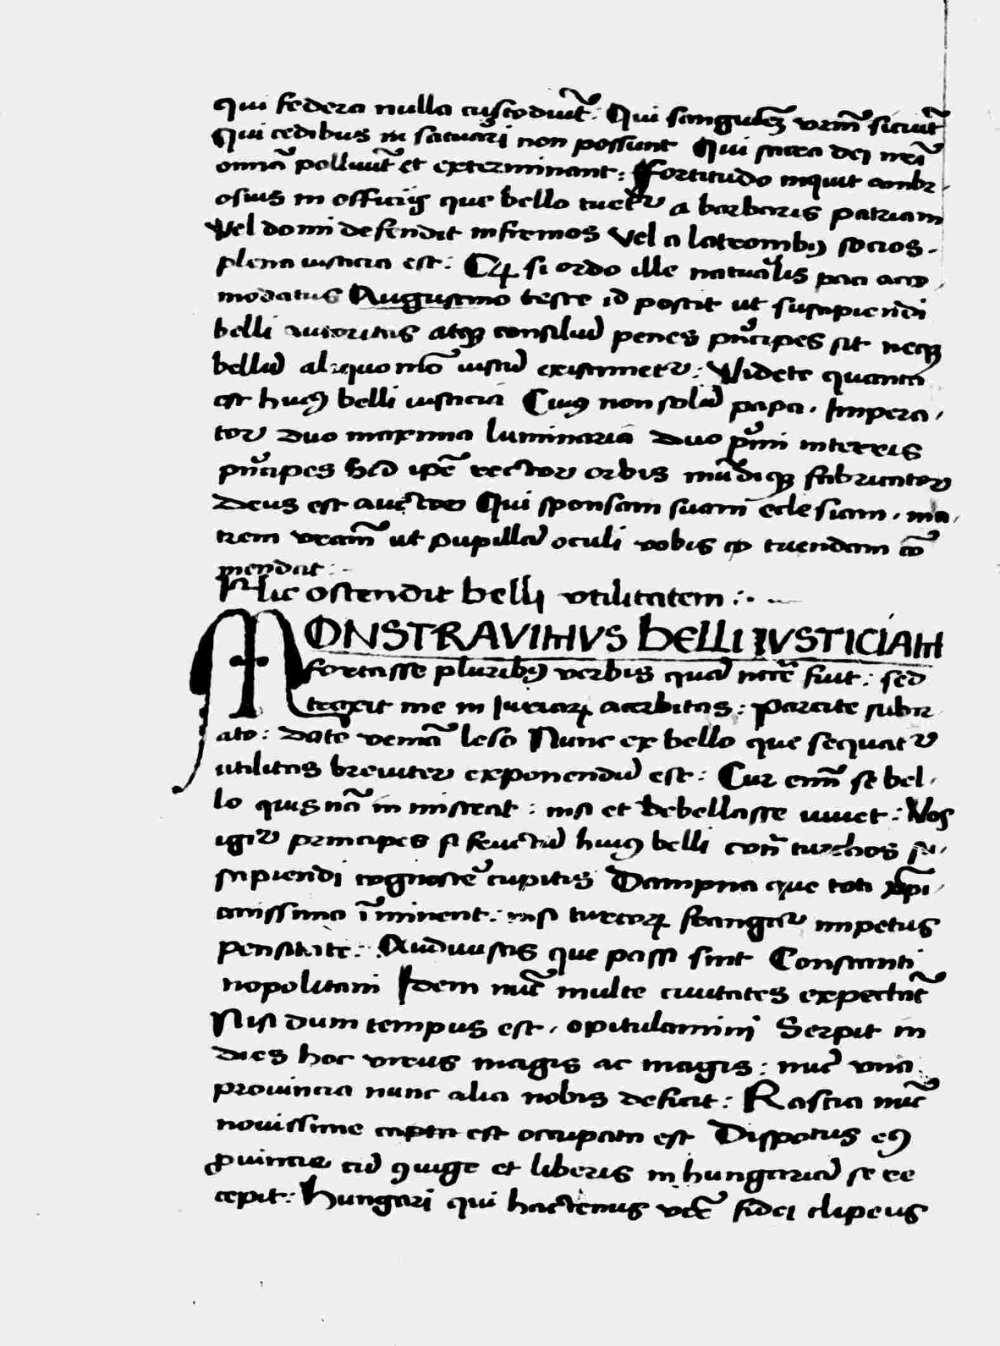 qui federa nulla custodiūt: Qui sanguinē vr̄m siciūt
Qui cedibus in saciari non possunt Qui sacra dei nr̄i
omīa polluūt et exterminant: Fortitudo inquit ambr-
osius in officiis que bello tuet᷑ a barbaris patriam
Vel domi defendit infirmos Vel a latronibꝫ socios.
plena iusticia est: Cꝝ si ordo ille naturalis paci acco-
modatus Augustino teste id poscit ut suscipiendi
belli autoritas atqꝫ consiliū penes pⁱncipes sit neqꝫ
bellū aliquo mō iustū existimet᷑: Videte quanta
est huiꝰ belli iusticia Cuiꝰ non solū papa. Impera-
tor duo maxima luminaria duo pⁱmi in terris
pⁱncipes Sed ip̄e rector orbis mūdiqꝫ fabricator
Deus est auctor Qui sponsam suam eclesiam. ma-
trem vr̄am ut pupillā oculi vobis ꝓ tuendam cō-
mendat:-
Hic ostendit belli vtilitatem:.-
MONSTRAVIMVS bELLI IVSTICIAM
fortasse pluribꝫ verbis quā nec̄e fuit: sed
traxit me iniuriaꝝ acerbitas: Parcite subir
ato: date veniā leso Nunc ex bello que sequat᷑
utilitas breviter exponendū est: Cur enī se bel-
lo quis nā in misceat: nisi et debellasse iuvet: Vos
igit᷑ principes si fructū huiꝰ belli cont᷑ turchos su-
scipiendi cognoscē cupitis Dampna que toti xp̄i-
anissimo īminent: nisi turcoꝝ frangat᷑ impetus
pensitate: Audiuistis que passi sint Constanti
nopolitani Idem nūc multe ciuitates expectāt
Nisi dum tempus est. opitulamini Serpit in
dies hoc virus magis ac magis: nūc vna
prouincia nunc alia nobis deficit: Rascia nūc
nouissime capta est occupata est Dispotus eiꝰ
ꝓuincie cū ꝯiuge et liberis in hungariā se re
cepit: Hungari qui hactenus vr̄e fidei clipeus